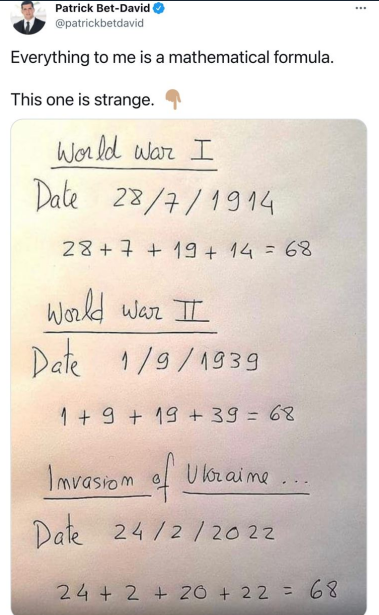 Patrick Bet-David
@patrickbetdavid
Everything to me is a mathematical formula.
This one is strange. 👇🏽
World War I
Date 28/7/1914
28 + 7 + 19 + 14 = 68
World War II
Date 1/9/1939
1 + 9 + 19 + 39 = 68
Invasion of Ukraine ...
Date 24/2/2022
24 + 2 + 20 + 22 = 68